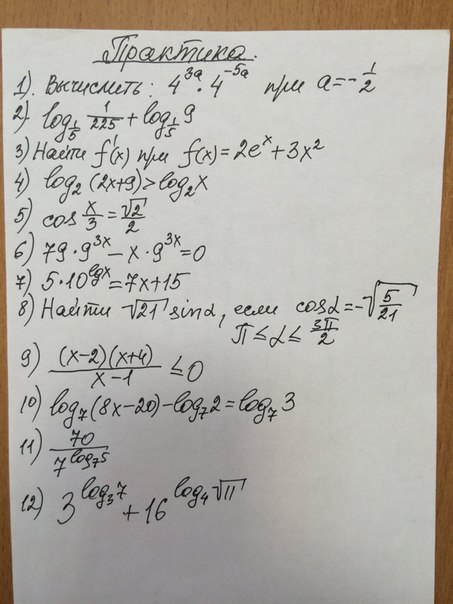 Практика.
1). Вычислить: 4^{3a} · 4^{-5a} при a = -1/2
2) log_{1/5} 1/225 + log_{1/5} 9
3) Найти f'(x) при f(x) = 2e^x + 3x^2
4) log_2 (2x+9) > log_2 x
5) cos x/3 = √2/2
6) 79 · 9^{3x} - x · 9^{3x} = 0
7) 5 · 10^{lgx} = 7x + 15
8) Найти √21 sinα, если cosα = -√(5/21)
π ≤ α ≤ 3π/2
9) (x-2)(x+4)/(x-1) ≤ 0
10) log_7 (8x-20) - log_7 2 = log_7 3
11) 70/7^{log_7 5}
12) 3^{log_3 7} + 16^{log_4 √11}